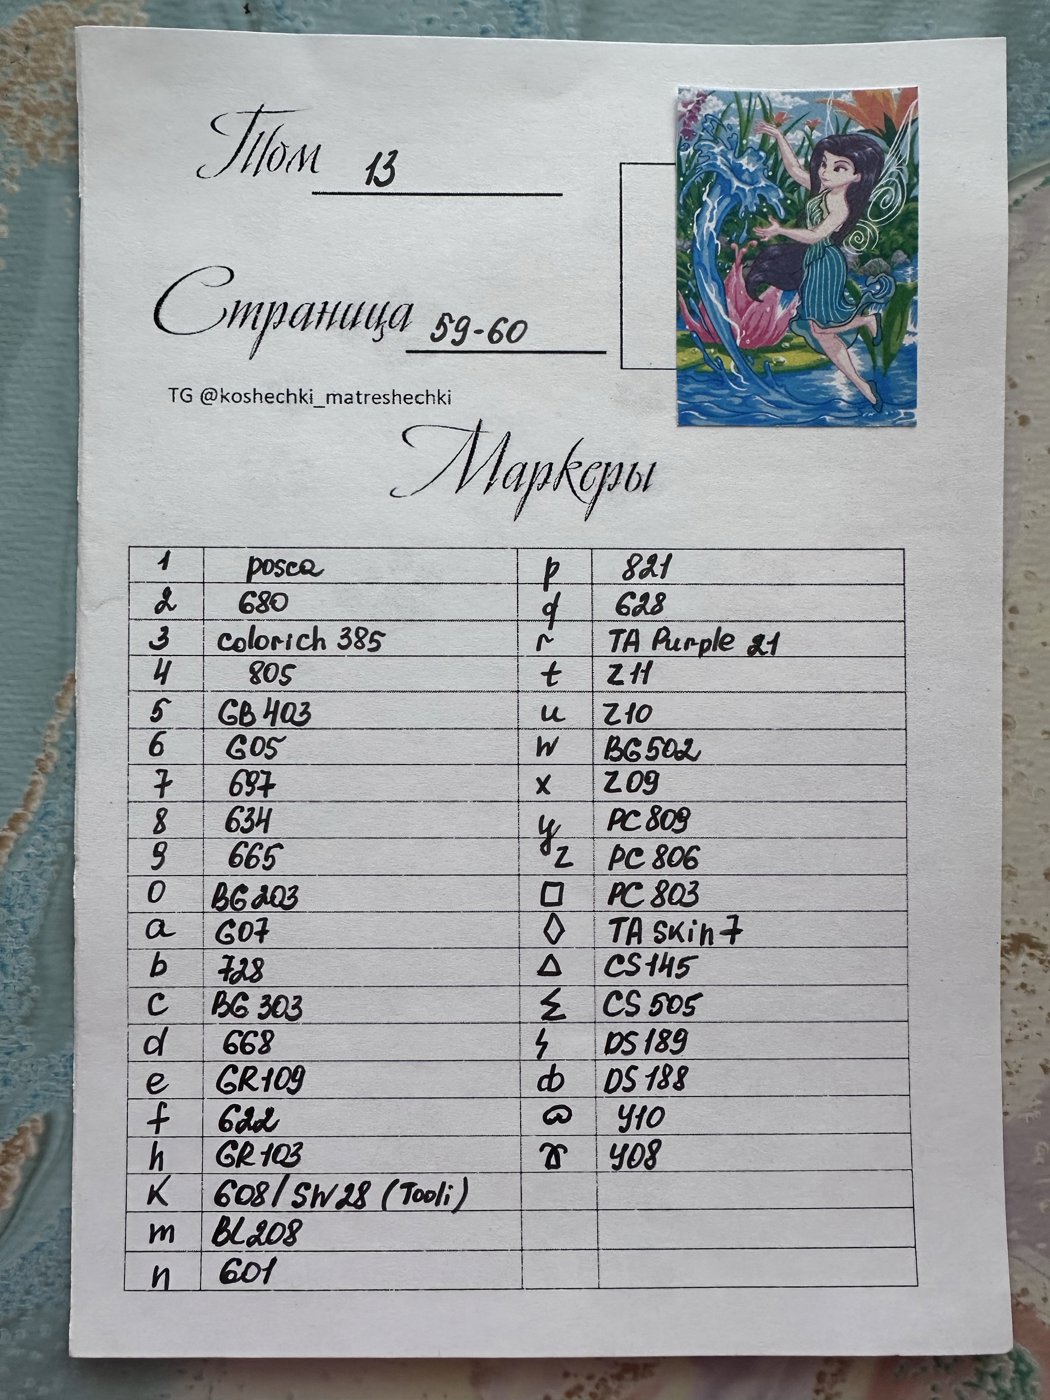 Том 13
Страница 59-60
TG @koshechki_matreshechki
Маркеры
1 posca p 821
2 680 q 628
3 colorich 385 r TA Purple 21
4 805 t Z11
5 GB 403 u Z10
6 G05 w BG 502
7 697 x Z09
8 634 y PC 809
9 665 z PC 806
0 BG 203 □ PC 803
a G07 ◊ TA Skin 7
b 728 △ CS 145
c BG 303 Σ CS 505
d 668 ϟ DS 189
e GR 109 ф DS 188
f 622 Y10
h GR 103 ♉ Y08
K 608/SW28 (Tooli)
m BL 208
n 601